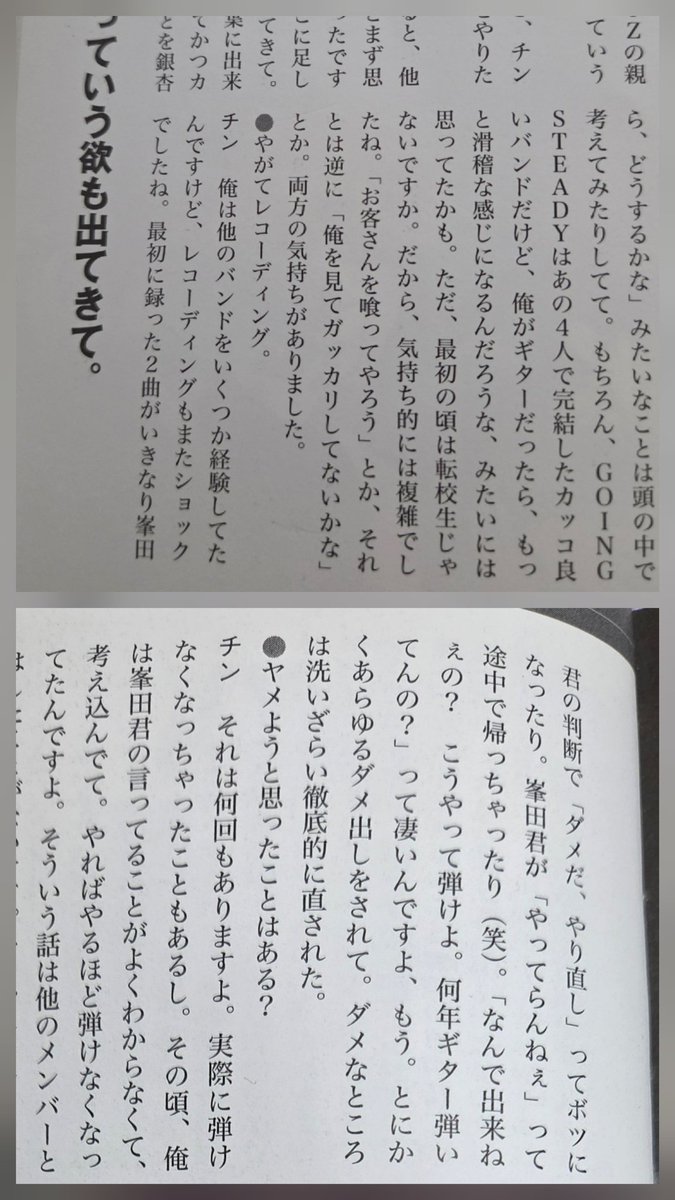 Zの親
ていう
、チン
とやりた
ると、他
まず思
ったです
に足し
てきて。
集に出来
てかつカ
とを銀杏
ら、どうするかな」みたいなことは頭の中で
考えてみたりしてて。もちろん、GOING
STEADYはあの4人で完結したカッコ良
いバンドだけど、俺がギターだったら、もっ
と滑稽な感じになるんだろうな、みたいには
思ってたかも。ただ、最初の頃は転校生じゃ
ないですか。だから、気持ち的には複雑でし
たね。「お客さんを喰ってやろう」とか、それ
とは逆に「俺を見てガッカリしてないかな」
とか。両方の気持ちがありました。
●やがてレコーディング。
チン　俺は他のバンドをいくつか経験してた
んですけど、レコーディングもまたショック
でしたね。最初に録った2曲がいきなり峯田
っていう欲も出てきて。
君の判断で「ダメだ、やり直し」ってボツに
なったり。峯田君が「やってらんねぇ」って
途中で帰っちゃったり（笑）。「なんで出来ね
ぇの？　こうやって弾けよ。何年ギター弾い
てんの？」って凄いんですよ、もう。とにか
くあらゆるダメ出しをされて。ダメなところ
は洗いざらい徹底的に直された。
●ヤメようと思ったことはある？
チン　それは何回もありますよ。実際に弾け
なくなっちゃったこともあるし。その頃、俺
は峯田君の言ってることがよくわからなくて、
考え込んでて。やればやるほど弾けなくなっ
てたんですよ。そういう話は他のメンバーと